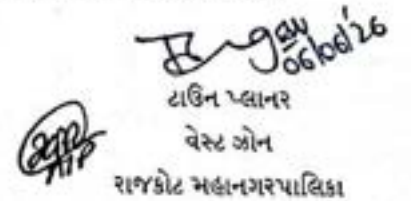 06/06/'26
ટાઉન પ્લાનર
વેસ્ટ ઝોન
રાજકોટ મહાનગરપાલિકા